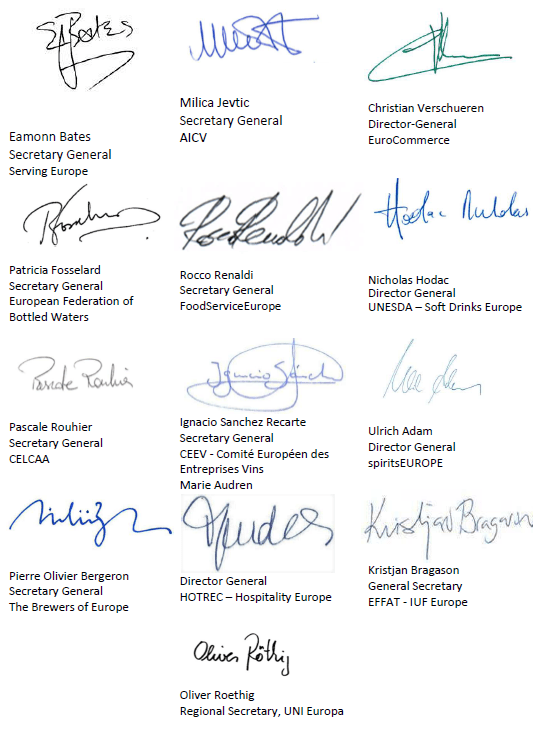 EJBates
Eamonn Bates
Secretary General
Serving Europe
Milica Jevtic
Secretary General
AICV
Christian Verschueren
Director-General
EuroCommerce
Patricia Fosselard
Secretary General
European Federation of
Bottled Waters
Rocco Renaldi
Rocco Renaldi
Secretary General
FoodServiceEurope
Hodac Nicholas
Nicholas Hodac
Director General
UNESDA – Soft Drinks Europe
Pascale Rouhier
Pascale Rouhier
Secretary General
CELCAA
Ignacio Sánch
Ignacio Sanchez Recarte
Secretary General
CEEV - Comité Européen des
Entreprises Vins
Marie Audren
Ulrich Adam
Director General
spiritsEUROPE
Pierre Olivier Bergeron
Secretary General
The Brewers of Europe
Director General
HOTREC – Hospitality Europe
Kristjan Bragason
Kristjan Bragason
General Secretary
EFFAT - IUF Europe
Oliver Röthig
Oliver Roethig
Regional Secretary, UNI Europa